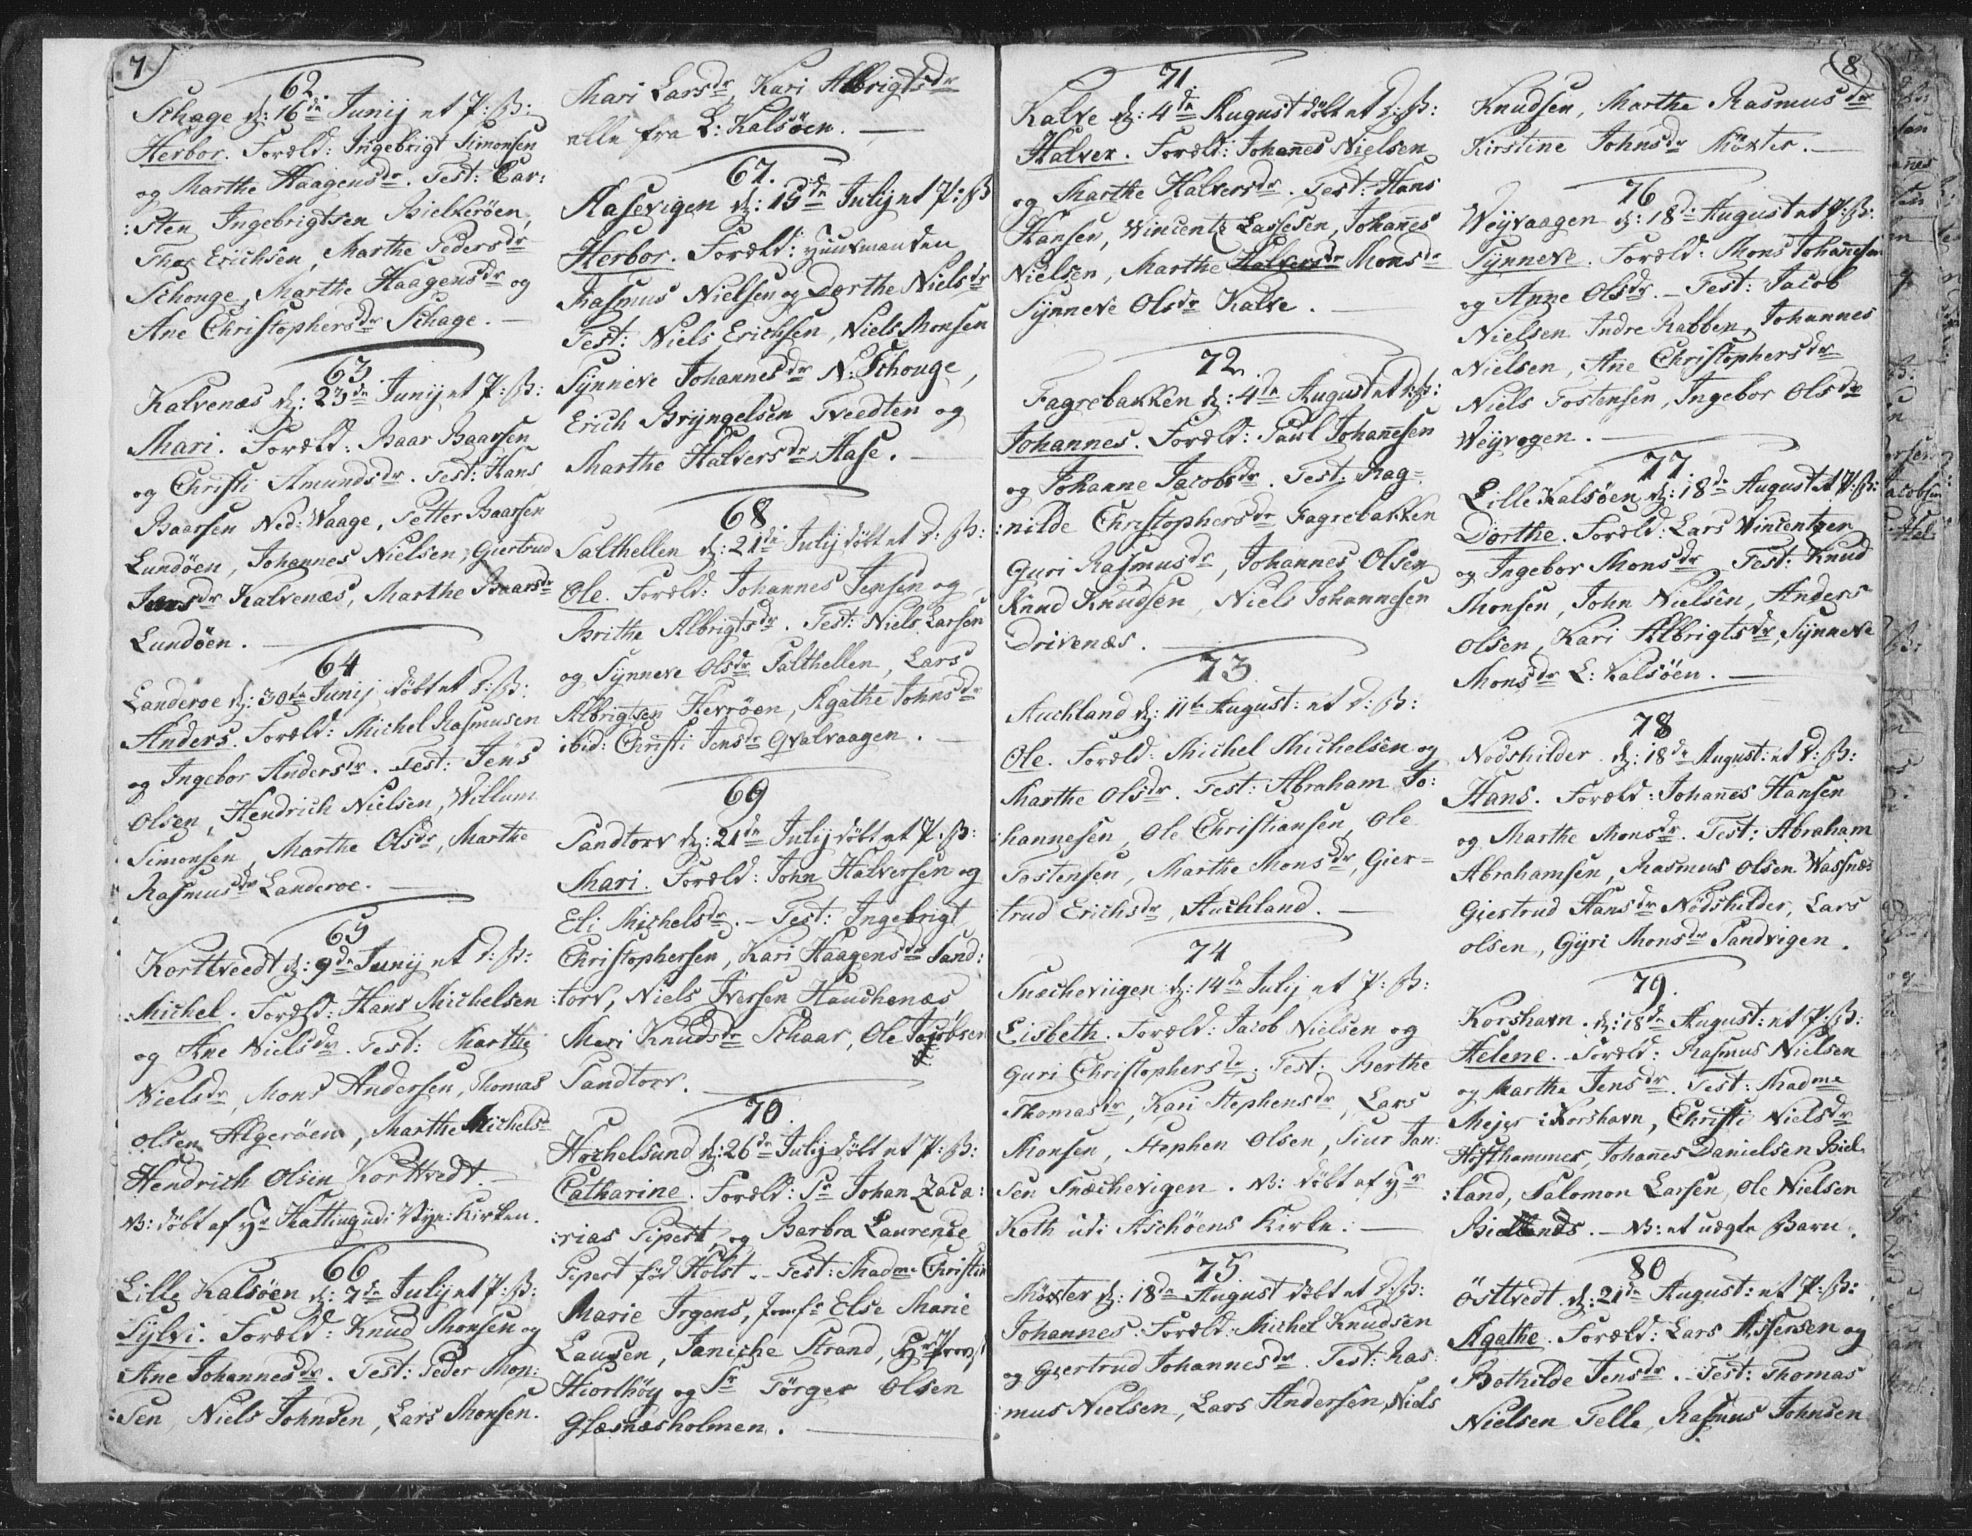 7
62
Schage d: 16de Junij et P: B:
Herbor. Foræld: Ingebrigt Simonsen
og Marthe Haagensdr. Test: Car:
:sten Ingebrigtsen Bielkerøen,
Thor Erichsen, Marthe Pedersdr
Schonge, Marthe Haagensdr og
Ane Christophersdr Schage. —
63
Kalvenæs d: 23de Junij et P: B:
Mari. Foræld: Baar Baarsen
og Christi Amundsdr. Test: Hans
Baarsen Ned: Waage, Petter Baarsen
Lundøen, Johannes Nielsen, Giertrud
Jensdr Kalvenæs, Marthe Baarsdr
Lundøen.
64
Landeroe d: 30te Junij, døbt et d: B:
Anders. Foræld: Michel Rasmusen
og Ingebor Andersdr. Test: Jens
Olsen, Hendrich Nielsen, Willum
Simonsen, Marthe Olsdr, Marthe
Rasmusdr Landeroe. —
65
Korttveedt d: 9de Junij et d: B:
Michel. Foræld: Hans Michelsen
og Ane Nielsdr. Test: Marthe
Nielsdr, Mons Andersen, Thomas
Olsen Algerøen, Marthe Michelsdr
Hendrich Olsen Korttvedt. —
NB: døbt af Hr Hatting udi Bye: Kirken.
66
Lille Kalsøen d: 7de Julij et P: B:
Sylvi. Foræld: Knud Monsen og
Ane Johannesdr. Test: Peder Mon:
:sen, Niels Johnsen, Lars Monsen.
Mari Larsdr, Kari Albrigtsdr
alle fra L: Kalsøen. —
67.
Aasevigen d: 15de Julij et P: B
Herbor. Foræld: Huusmanden
Rasmus Nielsen og Dorthe Nielsdr
Test: Niels Erichsen, Niels Monsen
Synneve Johannesdr N: Schouge,
Erich Bryngelsen Tveedten og
Marthe Halversdr Aase. —
68
Salthellen d: 21de Julij døbt et d: B:
Ole. Foræld: Johannes Jensen og
Brithe Albrigtsdr. Test: Niels Larsen
og Synneve Olsdr Salthellen, Lars
Albrigtsen Kerrøen, Agathe Johnsdr
ibid: Christi Jensdr Qvalvaagen. —
69
Sandtorv d: 21de Julij døbt et P: B:
Mari. Foræld: John Halversen og
Eli Michelsdr. — Test: Ingebrigt
Christophersen, Kari Haagensdr Sand:
:torv, Niels Iversen Hauchenæs
Mari Knudsdr Schaar, Ole Jacobsen
Sandtorv. —
70
Hochelsund d: 26de Julij døbt et P: B:
Catharine. Foræld: Sr Johan Zaca:
:rias Pipert, og Barbra Laurence
Pipert fød Holst. — Test: Madme Christin
Marie Irgens, Jomfr Else Marie
Lausen, Janiche Strand, Hr Provst
Hiorthøy og Sr Tørger Olsen
Glæsnæsholmen. —
71
Kalve d: 4de August døbt et d: B:
Halver. Foræld: Johanes Nielsen
og Marthe Halversdr. Test: Hans
Hansen, Wincentz Lassesen, Johanes
Nielsen, Marthe Monsdr
Synneve Olsdr Kalve. —
72.
Fagrebakken d: 4de August et d: B:
Johannes. Foræld: Paul Johanesen
og Johanne Jacobsdr. Test: Rag-
:nilde Christophersdr Fagrebakken
Guri Rasmusdr, Johannes Olsen
Knud Knudsen, Niels Johannesen
Drivenæs. —
73
Auchland d: 11te August: et d: B:
Ole. Foræld: Michel Michelsen og
Marthe Olsdr. Test: Abraham Jo:
:hannesen, Ole Christiansen, Ole
Tostensen, Marthe Monsdr, Gier-
:trud Erichsdr, Auchland. —
74
Snecheviigen d: 14de Julij et P: B:
Lisbeth. Foræld: Jacob Nielsen og
Guri Christophersdr. Test: Berthe
Thomasdr, Kari Stephensdr, Lars
Monsen, Stephen Olsen, Siur Jan:
sen Snechevigen. NB: døbt af Hr
Koth udi Aschøens Kirke. —
75.
Møxter d: 18de August døbt et d: B:
Johannes: Foræld: Michel Knudsen
og Giertrud Johannesdr. Test: Ras:
mus Nielsen, Lars Andersen, Niels
8
Knudsen, Marthe Rasmusdr
Kirstine Johnsdr Møxter. —
76
Weyvaagen d: 18de August et P: B:
Synneve. Foræld: Mons Johannesen
og Anne Olsdr. — Test: Jacob
Nielsen Indre Rabben, Johannes
Nielsen, Ane Christophersdr
Niels Tostensen, Ingebor Olsdr
Weyvogen. —
77
Lille Kalsøen d: 18de August et P: B:
Dorthe. Foræld: Lars Wincentzen
og Ingebor Monsdr Test: Knud
Monsen, John Nielsen, Anders
Olsen, Kari Albrigtsdr, Synneve
Monsdr L: Kalsøen. —
78
Nodshilder d: 18de August: et d: B:
Hans. Foræld: Johanes Hansen
og Marthe Monsdr. Test: Abraham
Abrahamsen, Rasmus Olsen Wassnæs
Giertrud Hansdr Nødshilder, Lars
Olsen, Gyri Monsdr Sandvigen.
79.
Korshavn. d: 18de August: et P: B:
Helene. Foræld: Rasmus Nielsen
og Marthe Jensdr. Test: Madme
Mejer i Korshavn, Christi Nielsdr
Hofthammer, Johanes Danielsen Biel
:land, Salomon Larsen, Ole Nielsen
NB: et uægte Barn.
80
Østtvedt d: 21de August: et P: B:
Agathe. Foræld: Lars Assersen og
Bothilde Jensdr. — Test: Thomas
Nielsen Telle, Rasmus Johnsen